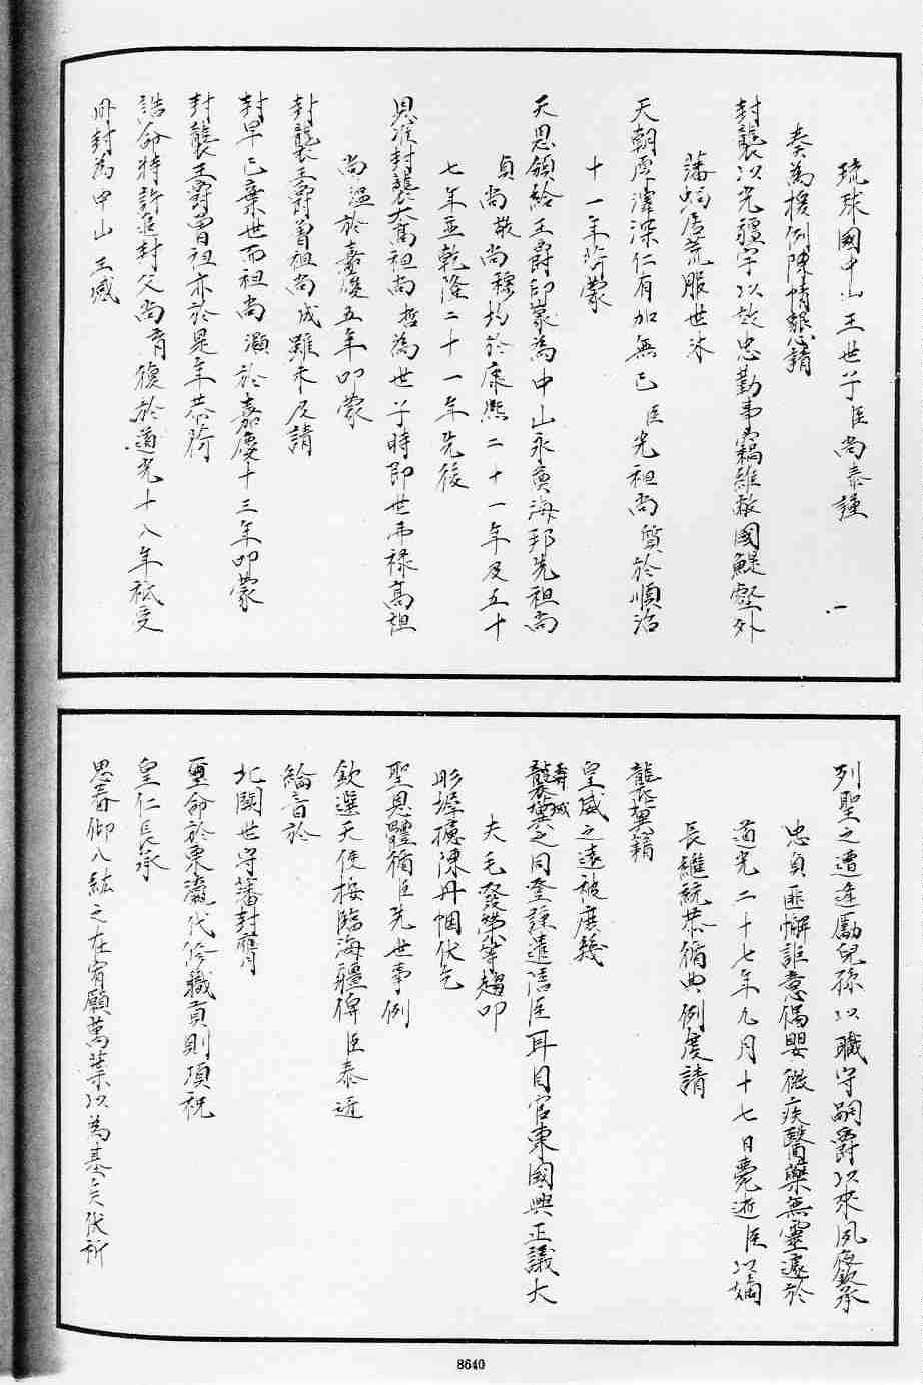 琉球國中山王世子臣尚泰謹
一
奏為援例陳情懇請
封襲以光疆宇以效忠勤事竊維敝國鯷壑外
藩蝸居荒服世沐
天朝厚澤深仁有加無已臣先祖尚質於順治
十一年荷蒙
天恩頒給王爵印篆為中山永奠海邦先祖尚
貞尚敬尚穆均於康熙二十一年及五十
七年並乾隆二十一年先後
恩准封襲大高祖尚哲為世子時即世弗祿高祖
尚溫於嘉慶五年叩蒙
封襲王爵曾祖尚成雖未及請
封早已棄世而祖尚灝於嘉慶十三年叩蒙
封襲王爵曾祖亦於是年恭荷
誥命特許追封父尚育復於道光十八年祗受
冊封為中山王感
列聖之遭逢勵兒孫以職守嗣爵以來夙夜欽承
忠貞匪懈詎意禍嬰微疾醫藥無靈遽於
道光二十七年九月十七日薨逝臣以嫡
長繼統恭循典例虔請
襲封
皇威之遠被庶幾
壽域之同登謹遣陪臣耳目官東國興正議大
夫毛發榮等趨叩
彤墀擄陳丹悃伏乞
聖恩體循臣先世事例
欽選天使按臨海疆俾臣泰近
綸音於
北闕世守藩封膺
璽命於東瀛代修職貢則頂祝
皇仁長承
恩眷仰八紘之在宥願萬葉以為基矣伏祈
8640